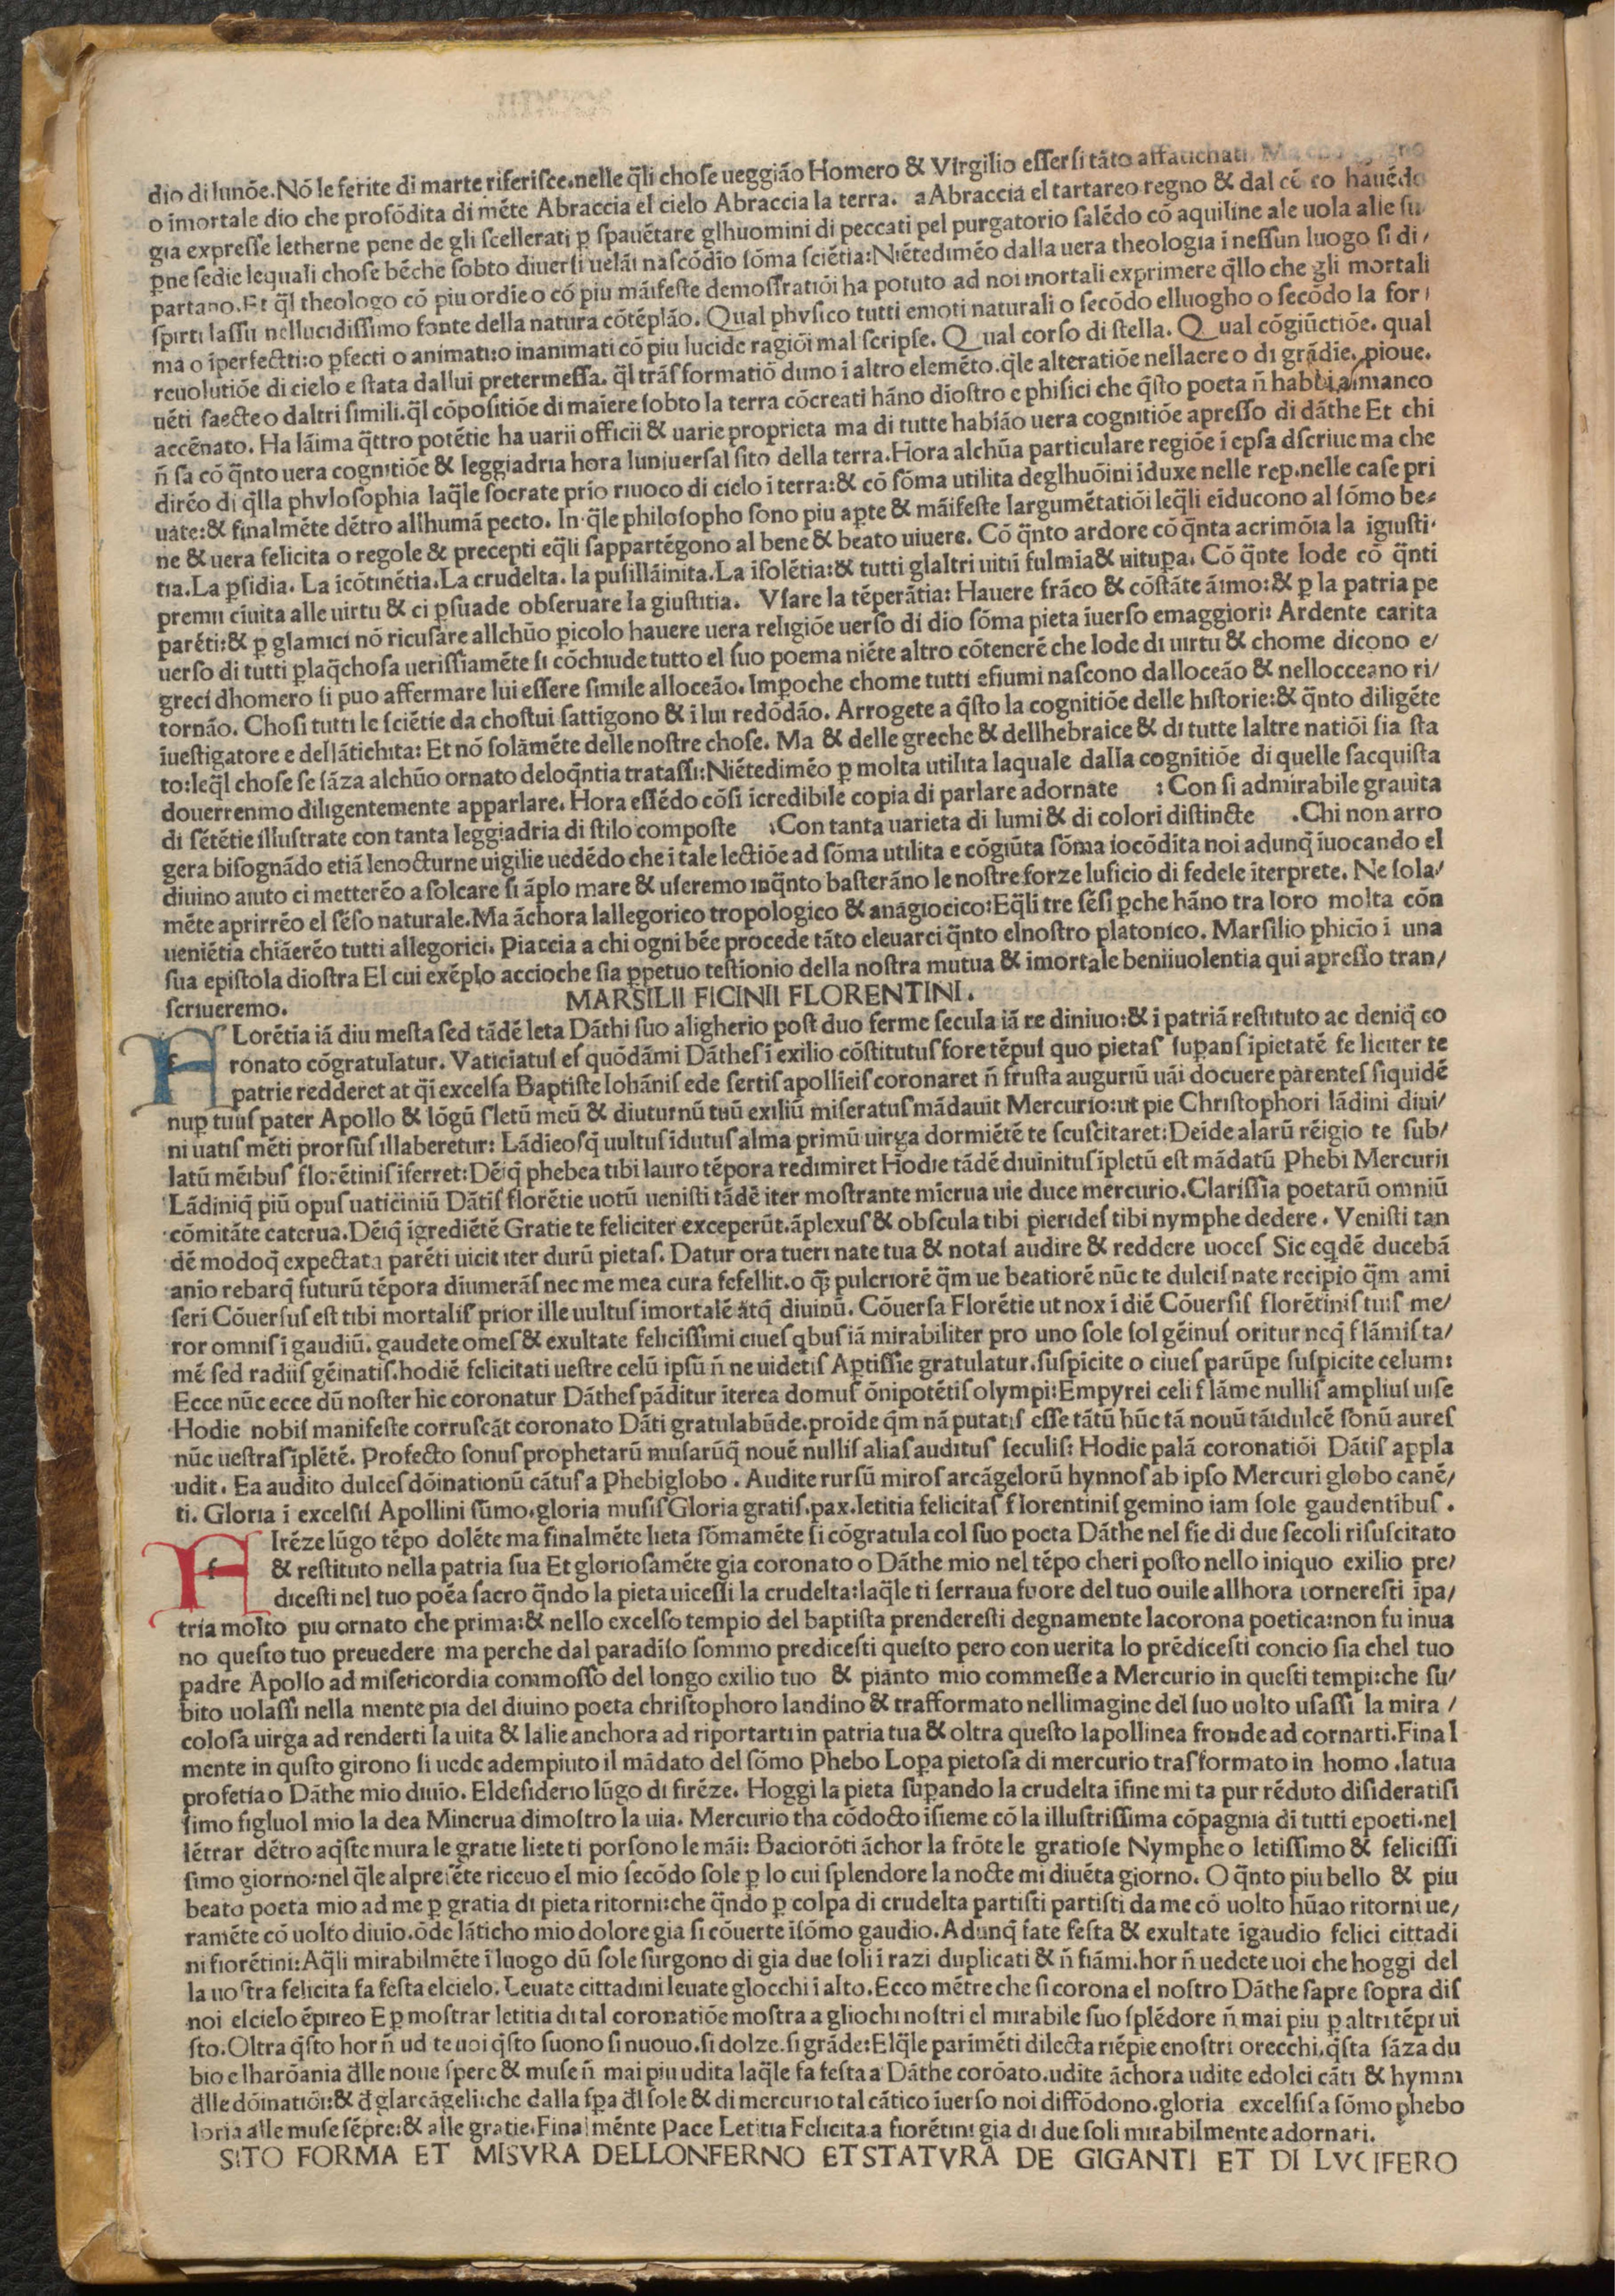 dio di lunóe. Nó le ferite di marte riferisce. nelle q̃li chose ueggiáo Homero & Virgilio essersi táto affatichati. Ma
o ímortale dio che profódita di méte Abraccia el cielo Abraccia la terra. aAbraccia el tartareo regno & dal cé co hauédo
gia expresse letherne pene de gli scellerati p̱ spauétare glhuomini di peccati pel purgatorio salédo có aquiline ale uola alle su
p̱ne sedie lequali chose béche sobto diuersi uelái nascódio sóma sciétia: Niétediméo dalla uera theologia i nessun luogo si di/
partano. Et q̃l theologo có piu ordie o có piu máifeste demostratiói ha potuto ad noi mortali exprimere q̃llo che gli mortali
spirti lassu nellucidissimo fonte della natura cótéplāo. Qual phvsico tutti emoti naturali o secódo elluogho o secōdo la for/
ma o íperfectti: o p̱fecti o animati: o inanimati có piu lucide ragiói mal scripse. Qual corso di stella. Qual cógiũctióe. qual
reuolutióe di cielo e stata dallui pretermessa. q̃l trás formatió duno i altro eleméto. q̃le alteratióe nellaere o di grādie. pioue.
uéti saecte o daltri simili. q̃l cópositióe di maiere sobto la terra cócreati háno diostro e phisici che q̃sto poeta ñ habbia manco
accénato. Ha láima q̃ttro potétie ha uarii officii & uarie proprieta ma di tutte habiáo uera cognitióe apresso di dáthe Et chi
ñ sa có q̃nto uera cognitióe & leggiadria hora luniuersal sito della terra. Hora alchúa particulare regióe i epsa dscriue ma che
diréo di q̃lla phvlosophia laq̃le socrate prío riuoco di cielo i terra: & có sóma utilita deglhuōini iduxe nelle rep. nelle case pri
uate: & finalméte détro allhumā pecto. In q̃le philosopho sono piu ap̱te & máifeste largumétatiói leq̃li eiducono al sómo be-
ne & uera felicita o regole & precepti eq̃li sappartégono al bene & beato uiuere. Có q̃nto ardore có q̃nta acrimóia la igiusti-
tia. La p̱fidia. La icótinétia. La crudelta. la pusilláinita. La isolétia: & tutti glaltri uitii fulmia & uitup̱a. Có q̃nte lode có q̃nti
premii ciuita alle uirtu & ci p̱suade obseruare la giustitia. Vsare la téperātia: Hauere fráco & cóstáte áimo: & p̱ la patria pe
paréti: & p̱ glamici nó ricusare allchũo p̱icolo hauere uera religióe uerso di dio sóma pieta iuerso emaggiori: Ardente carita
uerso di tutti p̱laq̃chosa uerissiaméte si cóchiude tutto el suo poema niéte altro cóteneré che lode di uirtu & chome dicono e/
greci dhomero si puo affermare lui essere simile alloceāo. Imp̱oche chome tutti efiumi nascono dalloceāo & nellocceano ri/
tornáo. Chosi tutti le sciétie da chostui sattigono & i lui redódáo. Arrogete a q̃sto la cognitióe delle historie: & q̃nto diligéte
iuestigatore e dellátichita: Et nó solāméte delle nostre chose. Ma & delle greche & dellhebraice & di tutte laltre natiói sia sta
to: leq̃l chose se sáza alchũo ornato deloq̃ntia tratassi: Niétediméo p̱ molta utilita laquale dalla cognitióe di quelle sacquista
douerrenmo diligentemente apparlare. Hora essédo cósi icredibile copia di parlare adornate : Con si admirabile grauita
di sététie illustrate con tanta leggiadria di stilo composte : Con tanta uarieta di lumi & di colori distincte . Chi non arro
gera bisognádo etiā lenocturne uigilie uedédo che i tale lectióe ad sóma utilita e cógiúta sóma iocódita noi adunq̃ iuocando el
diuino aiuto ci metteréo a solcare si áplo mare & useremo inq̃nto basteráno le nostre forze lusicio di fedele iterprete. Ne sola/
méte aprirréo el séso naturale. Ma áchora lallegorico tropologico & anagiocico: Eq̃li tre sési p̱che háno tra loro molta cón
ueniétia chiáeréo tutti allegorici. Piaccia a chi ogni bée procede táto eleuarci q̃nto elnostro platonico. Marsilio phicio i una
sua epistola diostra El cui exéplo accioche sia p̱petuo testionio della nostra mutua & imortale beniiuolentia qui apresso tran/
scriueremo. MARSILII FICINII FLORENTINI.
f Lorétia iá diu mesta sed tádé leta Dáthi suo aligherio post duo ferme secula iá re diniuo: & i patriá restituto ac deniq̃ co
ronato cógratulatur. Vaticiatus es quódámi Dáthes i exilio cóstitutus fore tépus quo pietas sup̱ans ipietaté fe liciter te
patrie redderet at q̃i excelsa Baptiste Iohánis ede sertis apollieis coronaret ñ frusta auguriũ uái docuere parentes siquidé
nup̱ tuus pater Apollo & lógũ sletũ meũ & diuturnũ tuũ exiliũ miseratus mádauit Mercurio: ut pie Christophori ládini diui/
ni uatis méti prorsũs illaberetur: Ládieosq̃ uultus idutus alma primũ uirga dormiété te scuscitaret: Deide alarũ réigio te sub/
latũ méibus florétinis iferret: Déiq̃ phebea tibi lauro tépora redimiret Hodie tádé diuinitus ipletũ est mádatũ Phebi Mercurii
Ládiniq̃ piũ opus uaticiniũ Dátis florétie uotũ uenisti tádé iter mostrante micrua uie duce mercurio. Clarissia poetarũ omniũ
cómitáte caterua. Déiq̃ igrediété Gratie te feliciter exceperũt. áplexus & obscula tibi pierides tibi nymphe dedere. Venisti tan
dé modoq̃ expectata paréti uicit iter durũ pietas. Datur ora tueri nate tua & notas audire & reddere uoces Sic eq̱dé ducebá
anio rebarq̃ futurũ tépora diumeráſ nec me mea cura fefellit. o q̃ꝫ pulcrioré q̃m ue beatioré nũc te dulcis nate recipio q̃m ami
seri Cóuersus est tibi mortalis prior ille uultus imortalé átq̃ diuinũ. Cóuersa Florétie ut nox i dié Cóuersis florétinis tuis me/
ror omnis i gaudiũ. gaudete omes & exultate felicissimi ciues q̱bus iá mirabiliter pro uno sole sol géinus oritur neq̃ flámis ta/
mé sed radiis géinatis. hodié felicitati uestre celũ ipsũ ñ ne uidetis Ap̱tissie gratulatur. suspicite o ciues parũpe suspicite celum:
Ecce nũc ecce dũ noster hic coronatur Dáthes páditur iterea domus ónipotétis olympi: Empyrei celi fláme nullis amplius uise
Hodie nobis manifeste corruscát coronato Dáti gratulabũde. proide q̃m ná putatis esse tátũ hũc tá nouũ táidulcé sonũ aures
nũc uestras ipléte. Profecto sonus prophetarũ musarũq̃ noué nullis alias auditus seculis: Hodie palá coronatiói Dátis appla
udit. Ea audito dulces dóinationũ cátus a Phebiglobo. Audite rursũ miros arcágelorũ hynnos ab ipso Mercuri globo cané/
ti. Gloria i excelsis Apollini sũmo. gloria musis Gloria gratis. pax. letitia felicitas florentinis gemino iam sole gaudentibus.
f Iréze lũgo tépo doléte ma finalméte lieta sómaméte si cógratula col suo poeta Dáthe nel fie di due secoli risuscitato
& restituto nella patria sua Et gloriosaméte gia coronato o Dáthe mio nel tépo cheri posto nello iniquo exilio pre/
dicesti nel tuo poéa sacro q̃ndo la pieta uicessi la crudelta: laq̃le ti serraua fuore del tuo ouile allhora torneresti ipa/
tria molto piu ornato che prima: & nello excelso tempio del baptista prenderesti degnamente lacorona poetica: non fu inua
no questo tuo preuedere ma perche dal paradiso sommo predicesti questo pero con uerita lo prédicesti concio sia chel tuo
padre Apollo ad misericordia commosso del longo exilio tuo & pianto mio commesse a Mercurio in questi tempi: che su/
bito uolassi nella mente pia del diuino poeta christophoro landino & trafformato nellimagine del suo uolto usassi la mira /
colosa uirga ad renderti la uita & lalie anchora ad riportarti in patria tua & oltra questo lapollinea fronde ad cornarti. Final
mente in q̃usto girono si uede adempiuto il mádato del sómo Phebo Lop̱a pietosa di mercurio trasformato in homo. latua
profetia o Dáthe mio diuio. Eldesiderio lũgo di firéze. Hoggi la pieta sup̱ando la crudelta ifine mi ta pur réduto disideratisi
simo figluol mio la dea Minerua dimostro la uia. Mercurio tha códocto isieme có la illustrissima cópagnia di tutti epoeti. nel
létrar détro aq̃ste mura le gratie liete ti porsono le mái: Bacioróti áchor la fróte le gratiose Nymphe o letissimo & felicissi
simo giorno: nel q̃le alpreséte riceuo el mio secódo sole p̱ lo cui splendore la nocte mi diuéta giorno. O q̃nto piu bello & piu
beato poeta mio ad me p̱ gratia di pieta ritorni: che q̃ndo p̱ colpa di crudelta partisti partisti da me có uolto hũao ritorni ue/
raméte có uolto diuio. óde láticho mio dolore gia si cóuerte isómo gaudio. Adunq̃ fate festa & exultate igaudio felici cittadi
ni fiorétini: Aq̃li mirabilméte i luogo dũ sole surgono di gia due soli i razi duplicati & ñ fiámi. hor ñ uedete uoi che hoggi del
la uostra felicita fa festa elcielo. Leuate cittadini leuate glocchi i alto. Ecco métre che si corona el nostro Dáthe sapre sopra dis
noi elcielo épireo E p̱ mostrar letitia di tal coronatióe mostra a gliochi nostri el mirabile suo splédore ñ mai piu p̱ altri tépi ui
sto. Oltra q̃sto hor ñ ud te uoi q̃sto suono si nuouo. si dolze. si gráde: Elq̃le pariméti dilecta riépie enostri orecchi. q̃sta sáza du
bio e lharóania d̃lle noue spere & muse ñ mai piu udita laq̃le fa festa a Dáthe coróato. udite áchora udite edolci cáti & hymni
d̃lle dóinatiói: & d̃ glarcágeli: che dalla sp̱a d̃l sole & di mercurio tal cático iuerso noi diffódono. gloria excelsis a sómo phebo
loria alle muse sépre: & alle gratie. Finalménte Pace Letitia Felicita a fiorétini gia di due soli mirabilmente adornati.
SITO FORMA ET MISVRA DELLONFERNO ET STATVRA DE GIGANTI ET DI LVCIFERO